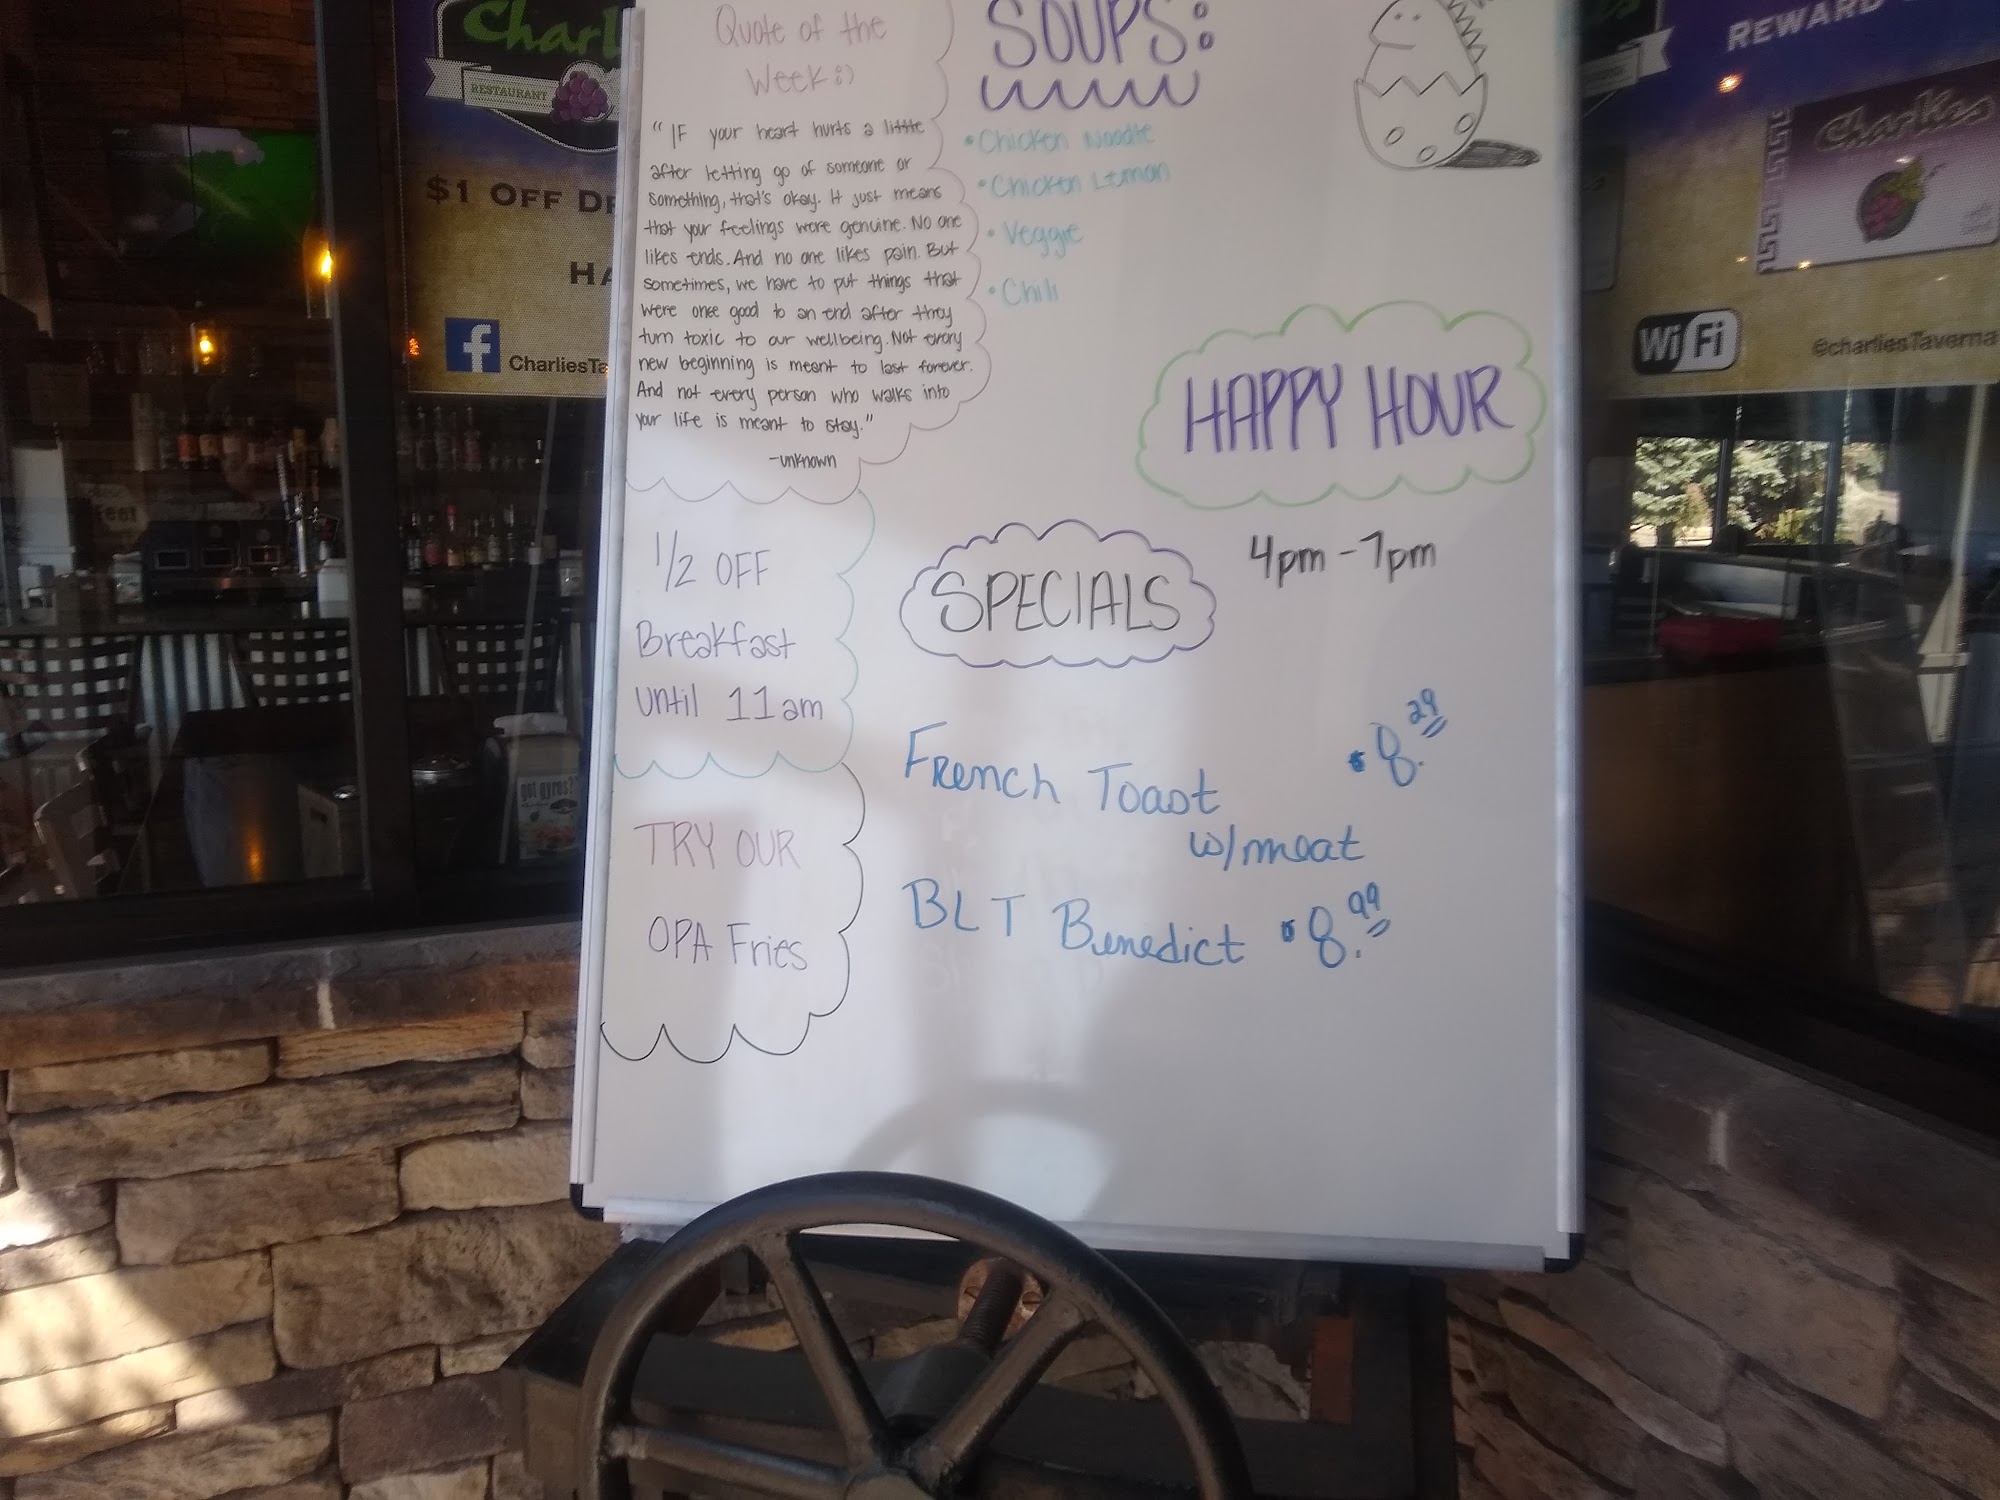 Quote of the
Week :)
"IF your heart hurts a little
after letting go of someone or
something, that's okay. It just means
that your feelings were genuine. No one
likes ends. And no one likes pain. But
sometimes, we have to put things that
were once good to an end after they
turn toxic to our wellbeing. Not every
new beginning is meant to last forever.
And not every person who walks into
your life is meant to stay."
-unknown
1/2 OFF
Breakfast
until 11am
TRY OUR
OPA Fries
SOUPS:
• Chicken Noodle
• Chicken Lemon
• Veggie
• Chili
HAPPY HOUR
4pm - 7pm
SPECIALS
French Toast $8.29
w/meat
BLT Benedict $8.99
Charl
RESTAURANT
$1 OFF
HA
f
CharliesTa
got gyros?
REWARD
Charlies
WiFi
@charliesTaverna